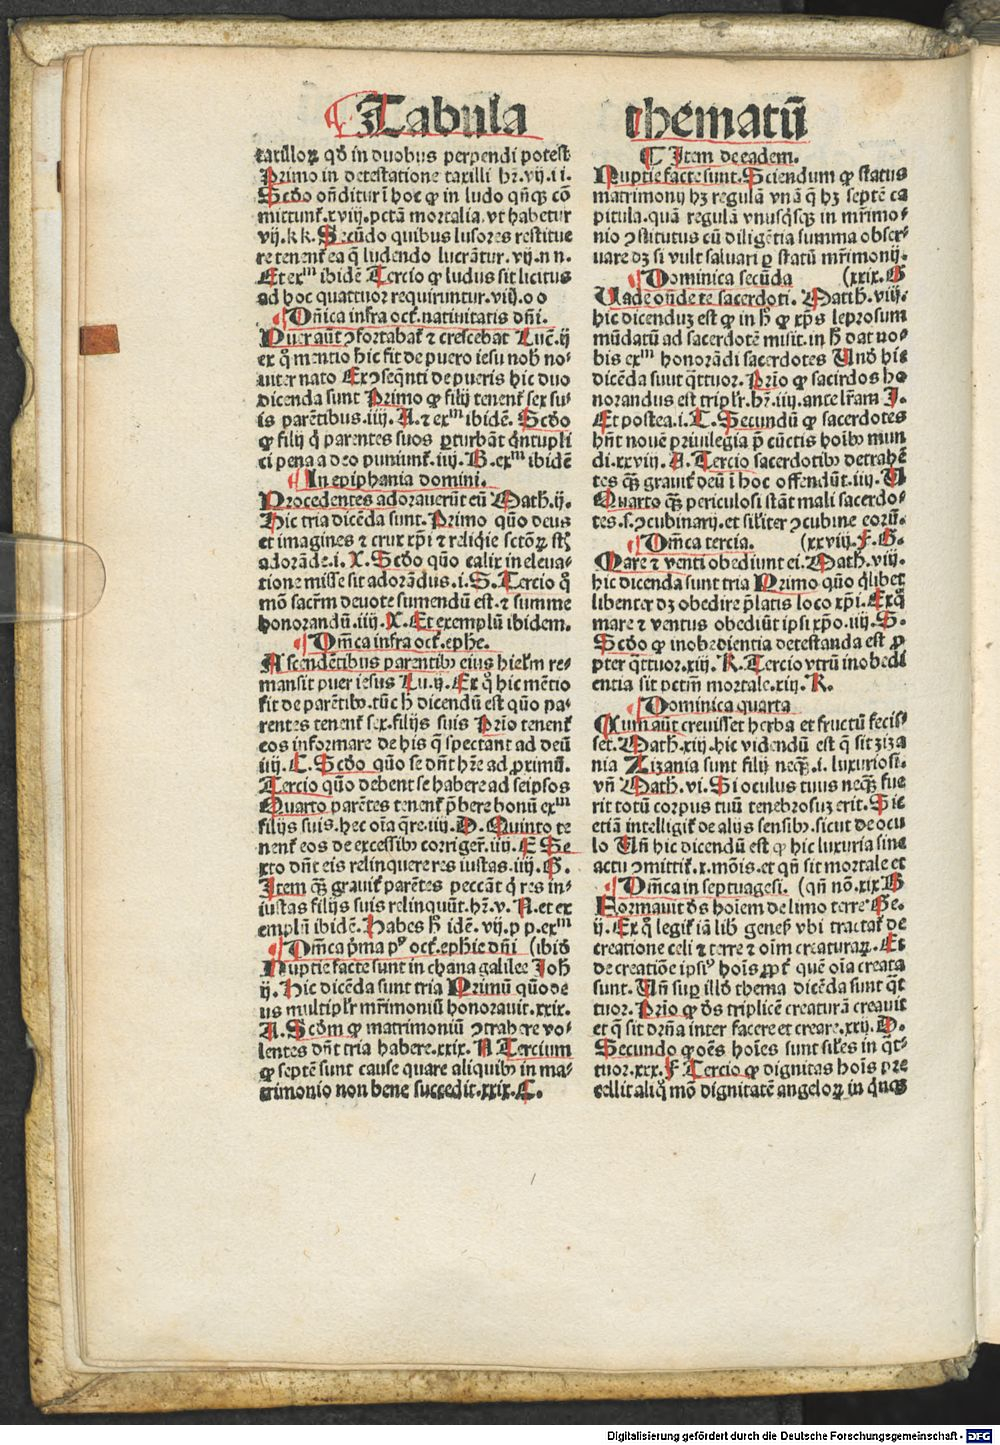 Tabula
taxilloꝝ qḋ in duobus perpendi potest
Primo in detestatione taxilli hr̄.vij.i i.
Scḋo on̄ditur ī hoc ꝙ in ludo qn̄qꝫ cō
mittunt᷑.xviij.pctā mortalia.vt habetur
vij.k k. Secūdo quibus lusores restitue
re tenent᷑ ea q̄ ludendo lucrātur.vij.n n.
Et exᵐ ibidē Tercio ꝙ ludus sit licitus
ad hoc quattuor requiruntur.viij.o o
¶ Dn̄ica infra oct᷑.natiuitatis dn̄i.
Puer aūt ꝯfortabat᷑ ⁊ crescebat Luc̄.ij
ex q̊ mentio hic fit de puero iesu nob̄ no-
uiter nato Ex ꝯseqn̄ti de pueris hic duo
dicenda sunt Primo ꝙ filij tenent᷑ sex su/
is parētibus.iiij.A.⁊ exᵐ ibidē. Scḋo
ꝙ filij q̇ parentes suos ꝑturbāt q̇ntupli
ci pena a deo puniunt᷑.iiij.B.exᵐ ibidē
¶ In epiphania domini.
Procedentes adorauerūt eū Math.ij.
Hic tria dicēda sunt. Primo quō deus
et imagines ⁊ crux xp̄i ⁊ reliq̇ie sctōꝝ st̄
adorāde.i.X. Scḋo quō calix in eleua-
tione misse sit adorādus.i.S. Tercio q̊
mō sacrm̄ deuote sumendū est.⁊ summe
honorandū.iiij.X. Et exemplū ibidem.
¶ Dn̄ica infra oct᷑.ephe.
Ascendētibus parentibꝰ eius hierl̄m re-
mansit puer iesus Lu.ij. Ex q̊ hic mētio
fit de parētibꝰ.tūc h̄ dicendū est quō pa-
rentes tenent᷑ sex.filijs suis Prīo tenent᷑
eos informare de his q̄ spectant ad deū
iiij.C. Scḋo quō se dn̄t hr̄e ad ꝓximū.
Tercio quō debent se habere ad seipsos
Quarto parētes tenent᷑ p̄bere bonū exᵐ
filijs suis.hec oīa q̄re.iiij.D. Quinto te
nent᷑ eos de excessibꝰ corriger̄.iiij.E Se
xto dn̄t eis relinquere res iustas.iiij.G.
Item qꝫ grauit᷑ parētes peccāt q̇ res in/
iustas filijs suis relinquūt.hr̄.v.A.et ex
emplū ibidē. Habes h̄ idē.vij.p p.exᵐ
¶ Dn̄ica p̄ma pꝰ oct᷑.ephie dn̄i (ibiḋ
Nuptie facte sunt in chana galilee Joh̄
ij. Hic dicēda sunt tria Primū quō de
us multiplr̄ mr̄imoniū honorauit.xxix.
A. Scḋm ꝙ matrimoniū ꝯtrahere vo/
lentes dn̄t tria habere.xxix.A Tercium
ꝙ septē sunt cause quare aliquibꝰ in ma-
trimonio non bene succedit.xxix.C.
thematū
¶ Item de eadem.
Nuptie facte sunt. Sciendum ꝙ status
matrimonij hꝫ regulā vnā q̄ hꝫ septē ca
pitula.quā regulā vnusq̇sqꝫ in mr̄imo/
nio ꝯstitutus cū diligētia summa obser-
uare dꝫ si vult saluari ꝑ statū mr̄imonij.
¶ Dominica secūda (xxix.G
Uade on̄de te sacerdoti. Matth.viij.
hic dicenduꝫ est ꝙ in h̄ ꝙ xp̄s leprosum
mūdatū ad sacerdotē misit.in h̄ dat no-
bis exᵐ honorādi sacerdotes Unḋ his
dicēda sunt q̄ttuor. Prīo ꝙ sacerdos ho
norandus est triplr̄.hr̄.iiij.ante lr̄am J.
Et postea.i.C. Secundū ꝙ sacerdotes
hn̄t nouē priuilegia p̄ cūctis hoībꝰ mun
di.xxviij.A. Tercio sacerdotibꝰ detrahē
tes qꝫ grauit᷑ deū ī hoc offendūt.iiij.U
Quarto qꝫ periculosi stāt mali sacerdo-
tes.s.ꝯcubinarij.et sil̄iter ꝯcubine eorū.
¶ Dn̄ica tercia. (xxviij.F.G.
Mare ⁊ venti obediunt ei. Math.viij.
hic dicenda sunt tria Primo quō q̇libet
libenter dꝫ obedire p̄latis loco xp̄i. Ex q̊
mare ⁊ ventus obediūt ipsi xp̄o.iiij.S.
Scḋo ꝙ inobedientia detestanda est ꝓ
pter q̄ttuor.xiij.K. Tercio vtrū inobedi
entia sit pctm̄ mortale.xiij.K.
¶ Dominica quarta
Cum aūt creuisset herba et fructū fecis/
set. Math.xiij.hic videndū est q̄ sit ziza
nia Zizania sunt filij neqꝫ.i.luxuriosi.
vn̄ Math.vi. Si oculus tuus neqꝫ fue
rit totū corpus tuū tenebrosuꝫ erit. Sic
etiā intelligit᷑ de alijs sensibꝰ.sicut de ocu
lo Un̄ hic dicendū est ꝙ hic luxuria sine
actu ꝯmittit᷑.x.mōis.et qn̄ sit mortale et
¶ Dn̄ica in septuagesi. (qn̄ nō.xix.B
Formauit ds̄ hoīem de limo terre Ge.
ij. Ex q̊ legit᷑ iā lib̄ genes̄ vbi tractat᷑ de
creatione celi ⁊ terre ⁊ oīm creaturaꝝ. Et
de creatiōe ipsiꝰ hoīs ꝓpt᷑ quē oīa creata
sunt. Un̄ suꝑ illḋ thema dicēda sunt q̄t
tuor. Prīo ꝙ ds̄ triplicē creaturā creauit
et q̄ sit dr̄n̄a inter facere et creare.xxij.D.
Secundo ꝙ oēs hoīes sunt sil̄es in q̄t-
tuor.xxx.F Tercio ꝙ dignitas hoīs pre
cellit aliq̊ mō dignitatē angeloꝝ in q̇nqꝫ
Digitalisierung gefördert durch die Deutsche Forschungsgemeinschaft - DFG